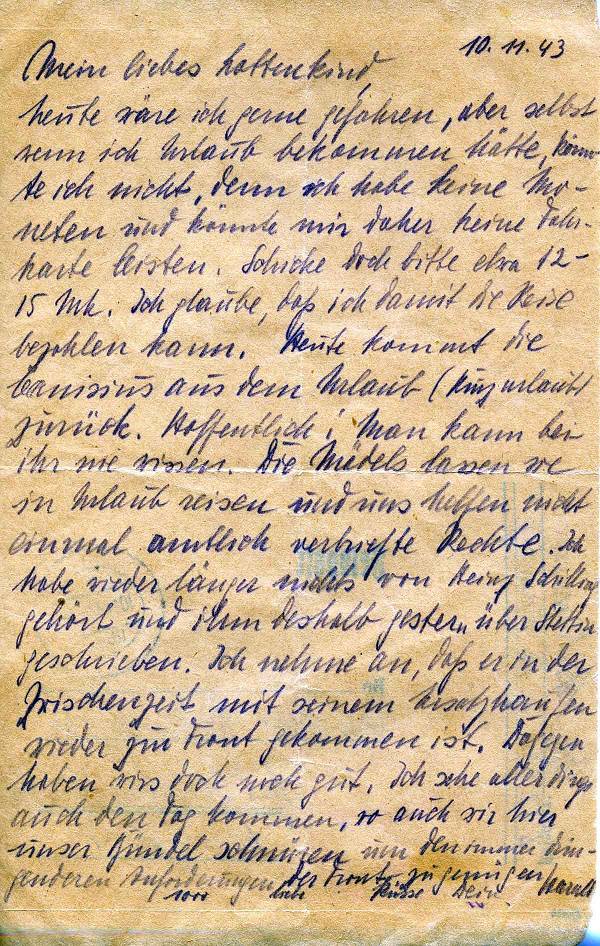 10. 11. 43
Mein liebes Lottenkind,
heute wäre ich gerne gefahren, aber selbst
wenn ich Urlaub bekommen hätte, könn-
te ich nicht, denn ich habe keine Mo-
neten und könnte mir daher keine Fahr-
karte leisten. Schicke doch bitte etwa 12-
15 Mk. Ich glaube, daß ich damit die Reise
bezahlen kann. Heute kommt die
Canisius aus dem Urlaub (Kurzurlaub)
zurück. Hoffentlich! Man kann bei
ihr nie wissen. Die Mädels lassen sie
in Urlaub reisen und uns helfen nicht
einmal amtlich verbriefte Rechte. Ich
habe wieder länger nichts von Heinz Schilling
gehört und ihm deshalb gestern über Stettin
geschrieben. Ich nehme an, daß er in der
Zwischenzeit mit seinem Ersatzhaufen
wieder zur Front gekommen ist. Dagegen
haben wirs doch noch gut. Ich sehe allerdings
auch den Tag kommen, wo auch wir hier
unser Bündel schnüren um den immer drin-
genderen Anforderungen der Front zu genügen
1000 liebe Küsse Dein